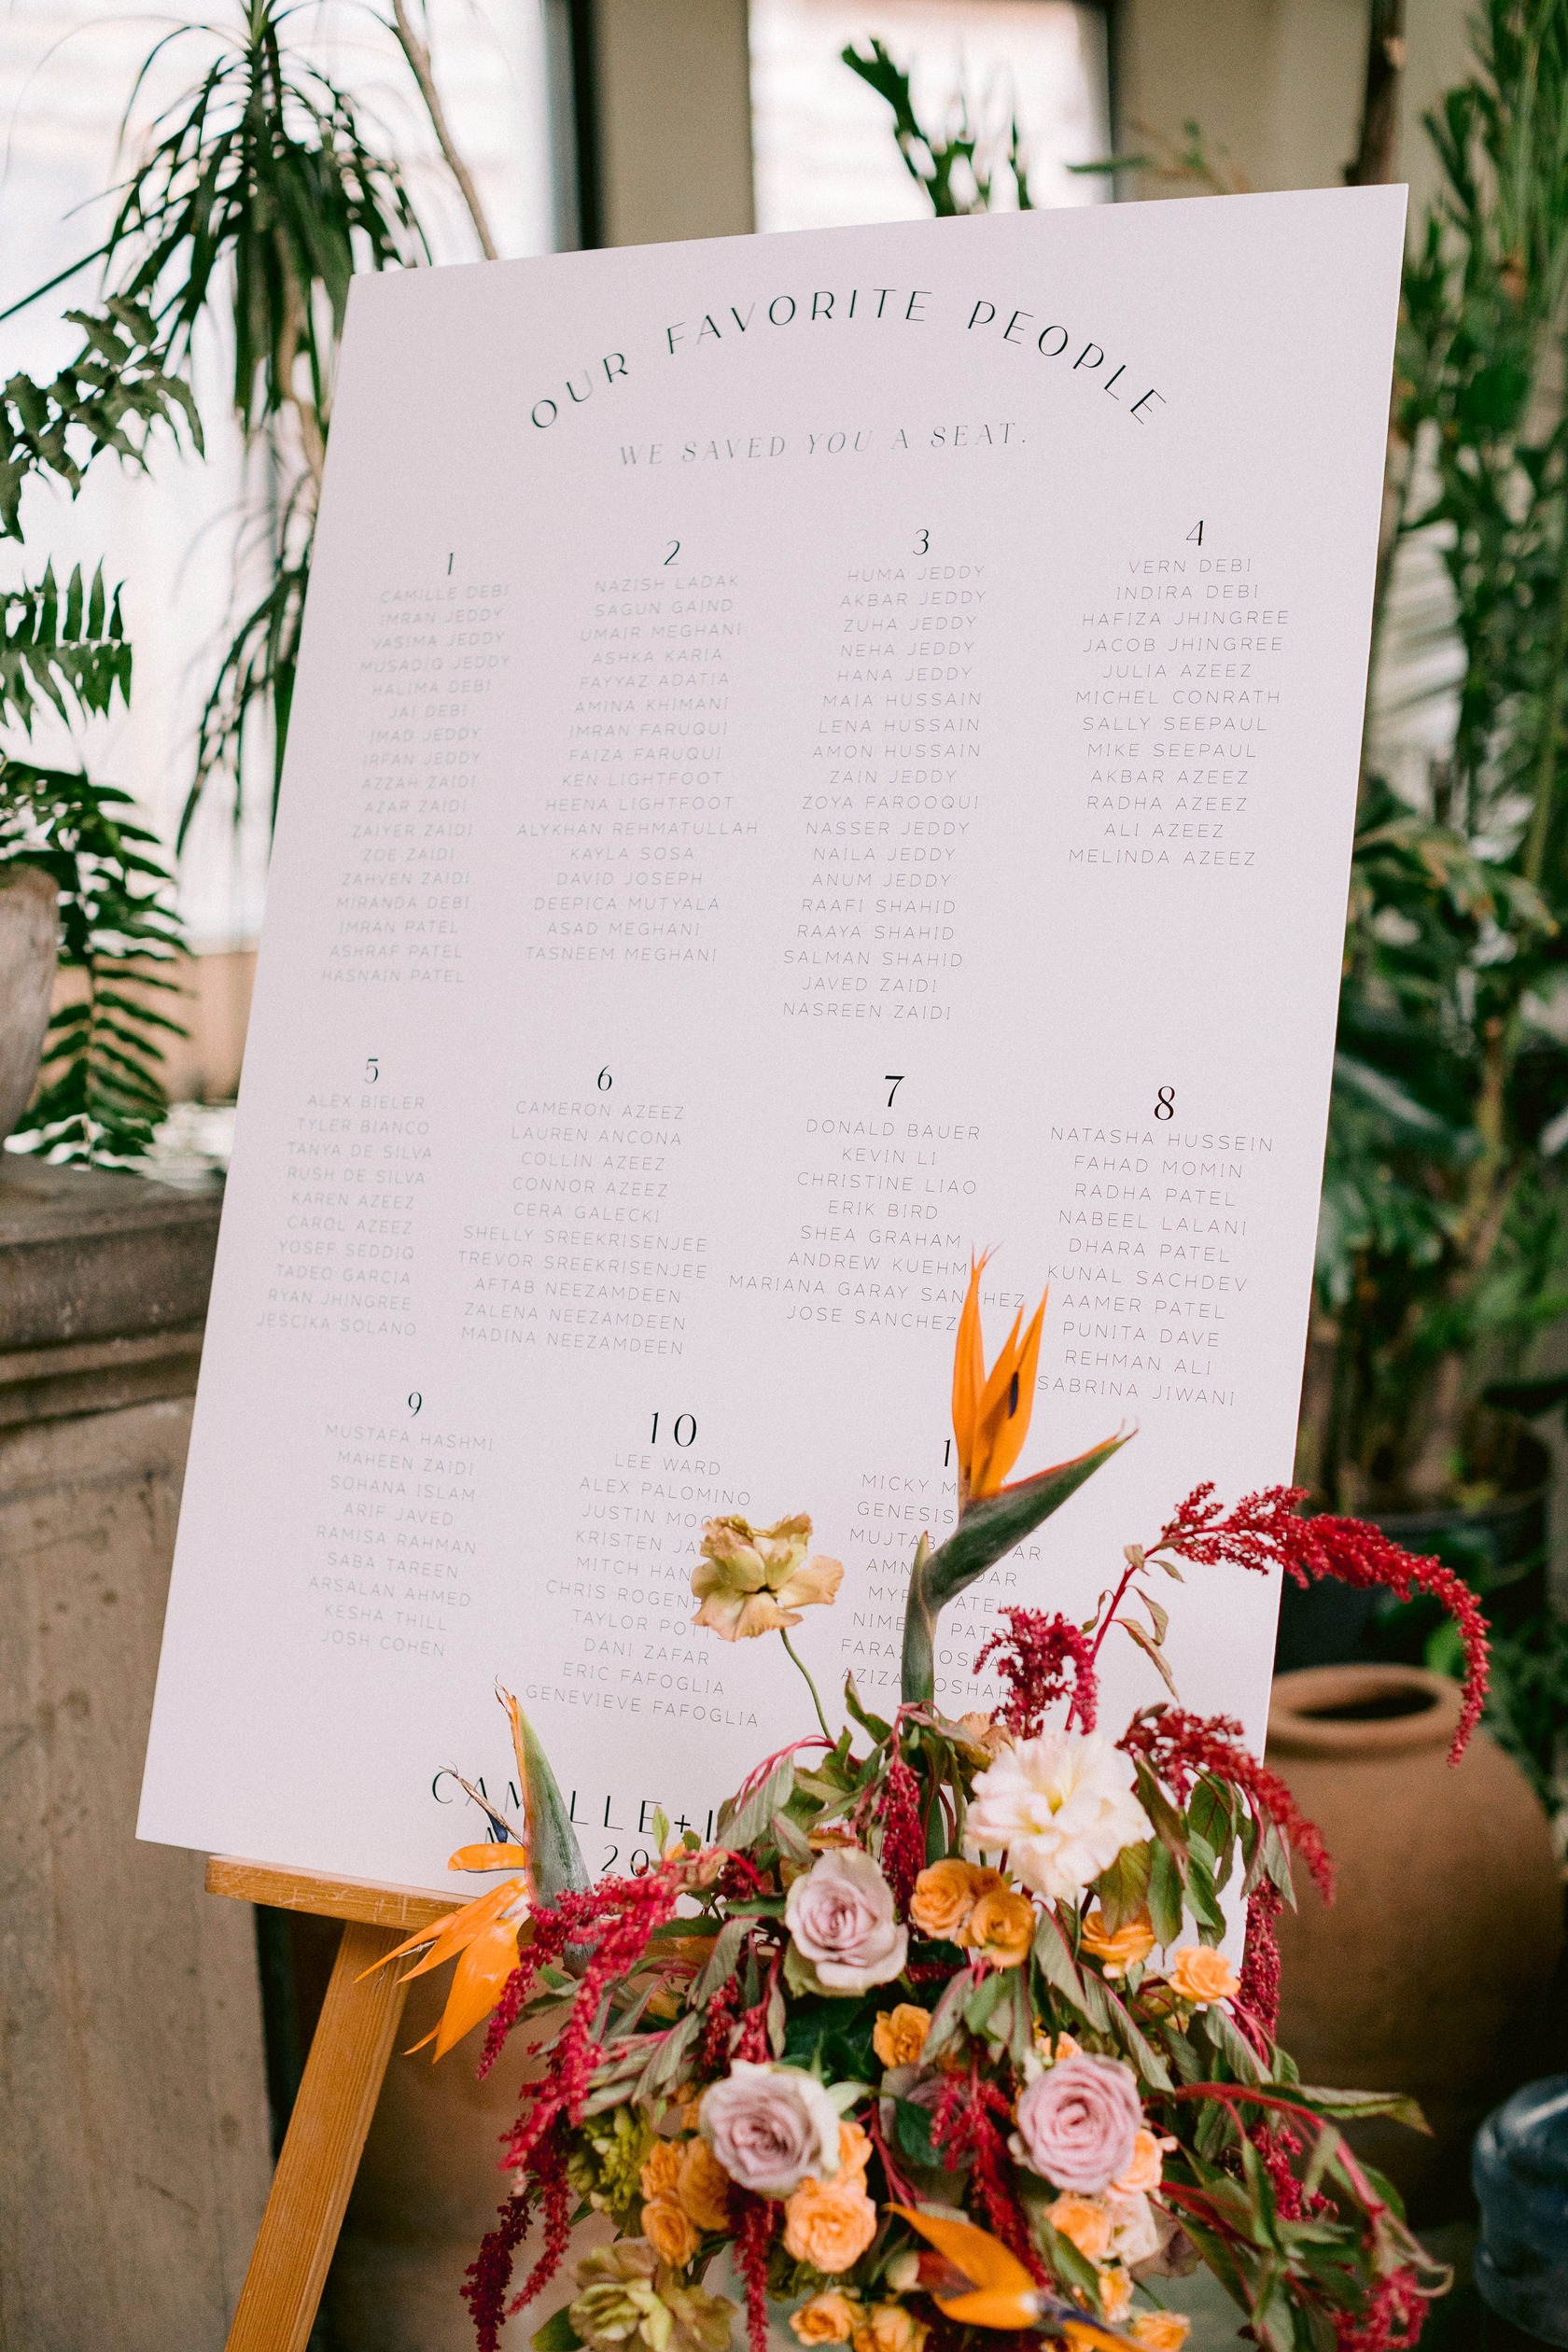 OUR FAVORITE PEOPLE
WE SAVED YOU A SEAT.
1
CAMILLE DEBI
IMRAN JEDDY
VASIMA JEDDY
MUSADIQ JEDDY
HALIMA DEBI
JAI DEBI
IMAD JEDDY
IRFAN JEDDY
AZZAH ZAIDI
AZAR ZAIDI
ZAIYER ZAIDI
ZOE ZAIDI
ZAHVEN ZAIDI
MIRANDA DEBI
IMRAN PATEL
ASHRAF PATEL
HASNAIN PATEL
2
NAZISH LADAK
SAGUN GAIND
UMAIR MEGHANI
ASHKA KARIA
FAYYAZ ADATIA
AMINA KHIMANI
IMRAN FARUQUI
FAIZA FARUQUI
KEN LIGHTFOOT
HEENA LIGHTFOOT
ALYKHAN REHMATULLAH
KAYLA SOSA
DAVID JOSEPH
DEEPICA MUTYALA
ASAD MEGHANI
TASNEEM MEGHANI
3
HUMA JEDDY
AKBAR JEDDY
ZUHA JEDDY
NEHA JEDDY
HANA JEDDY
MAIA HUSSAIN
LENA HUSSAIN
AMON HUSSAIN
ZAIN JEDDY
ZOYA FAROOQUI
NASSER JEDDY
NAILA JEDDY
ANUM JEDDY
RAAFI SHAHID
RAAYA SHAHID
SALMAN SHAHID
JAVED ZAIDI
NASREEN ZAIDI
4
VERN DEBI
INDIRA DEBI
HAFIZA JHINGREE
JACOB JHINGREE
JULIA AZEEZ
MICHEL CONRATH
SALLY SEEPAUL
MIKE SEEPAUL
AKBAR AZEEZ
RADHA AZEEZ
ALI AZEEZ
MELINDA AZEEZ
5
ALEX BIELER
TYLER BIANCO
TANYA DE SILVA
RUSH DE SILVA
KAREN AZEEZ
CAROL AZEEZ
YOSEF SEDDIQ
TADEO GARCIA
RYAN JHINGREE
JESCIKA SOLANO
6
CAMERON AZEEZ
LAUREN ANCONA
COLLIN AZEEZ
CONNOR AZEEZ
CERA GALECKI
SHELLY SREEKRISENJEE
TREVOR SREEKRISENJEE
AFTAB NEEZAMDEEN
ZALENA NEEZAMDEEN
MADINA NEEZAMDEEN
7
DONALD BAUER
KEVIN LI
CHRISTINE LIAO
ERIK BIRD
SHEA GRAHAM
ANDREW
MARIANA GARAY SANCHEZ
JOSE SANCHEZ
8
NATASHA HUSSEIN
FAHAD MOMIN
RADHA PATEL
NABEEL LALANI
DHARA PATEL
KUNAL SACHDEV
AAMER PATEL
PUNITA DAVE
REHMAN ALI
SABRINA JIWANI
9
MUSTAFA HASHMI
MAHEEN ZAIDI
SOHANA ISLAM
ARIF JAVED
RAMISA RAHMAN
SABA TAREEN
ARSALAN AHMED
KESHA THILL
JOSH COHEN
10
LEE WARD
ALEX PALOMINO
JUSTIN
KRISTEN
MITCH
CHRIS
TAYLOR
DANI ZAFAR
ERIC FAFOGLIA
GENEVIEVE FAFOGLIA
MICKY
GENESIS
CAMILLE+